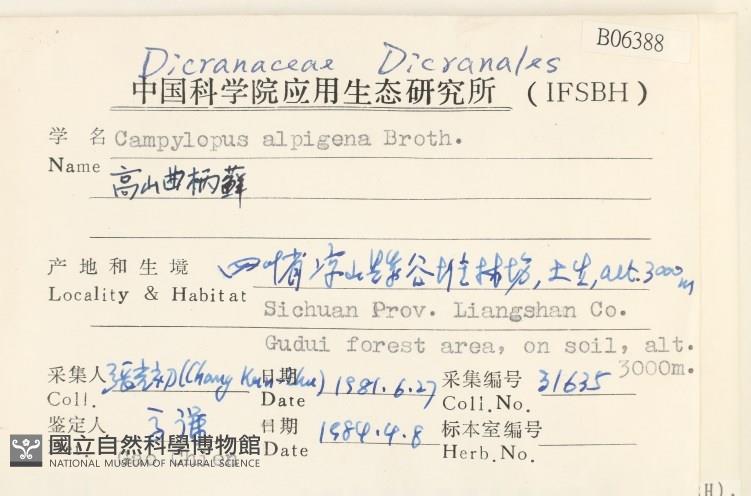 B06388
Dicranaceae Dicranales
中国科学院应用生态研究所 (IFSBH)
学 名 Campylopus alpigena Broth.
Name 高山曲柄藓
产地和生境 四川省凉山县谷堆林场,土生,alt.3000m
Locality & Habitat
Sichuan Prov. Liangshan Co.
Gudui forest area, on soil, alt.
3000m.
采集人 (Chang 日期 1981.6.27 采集编号 31635
Coll. Date Coll.No.
鉴定人 日期 1984.4.8 标本室编号
Date Herb.No.
國立自然科學博物館
NATIONAL MUSEUM OF NATURAL SCIENCE
H).